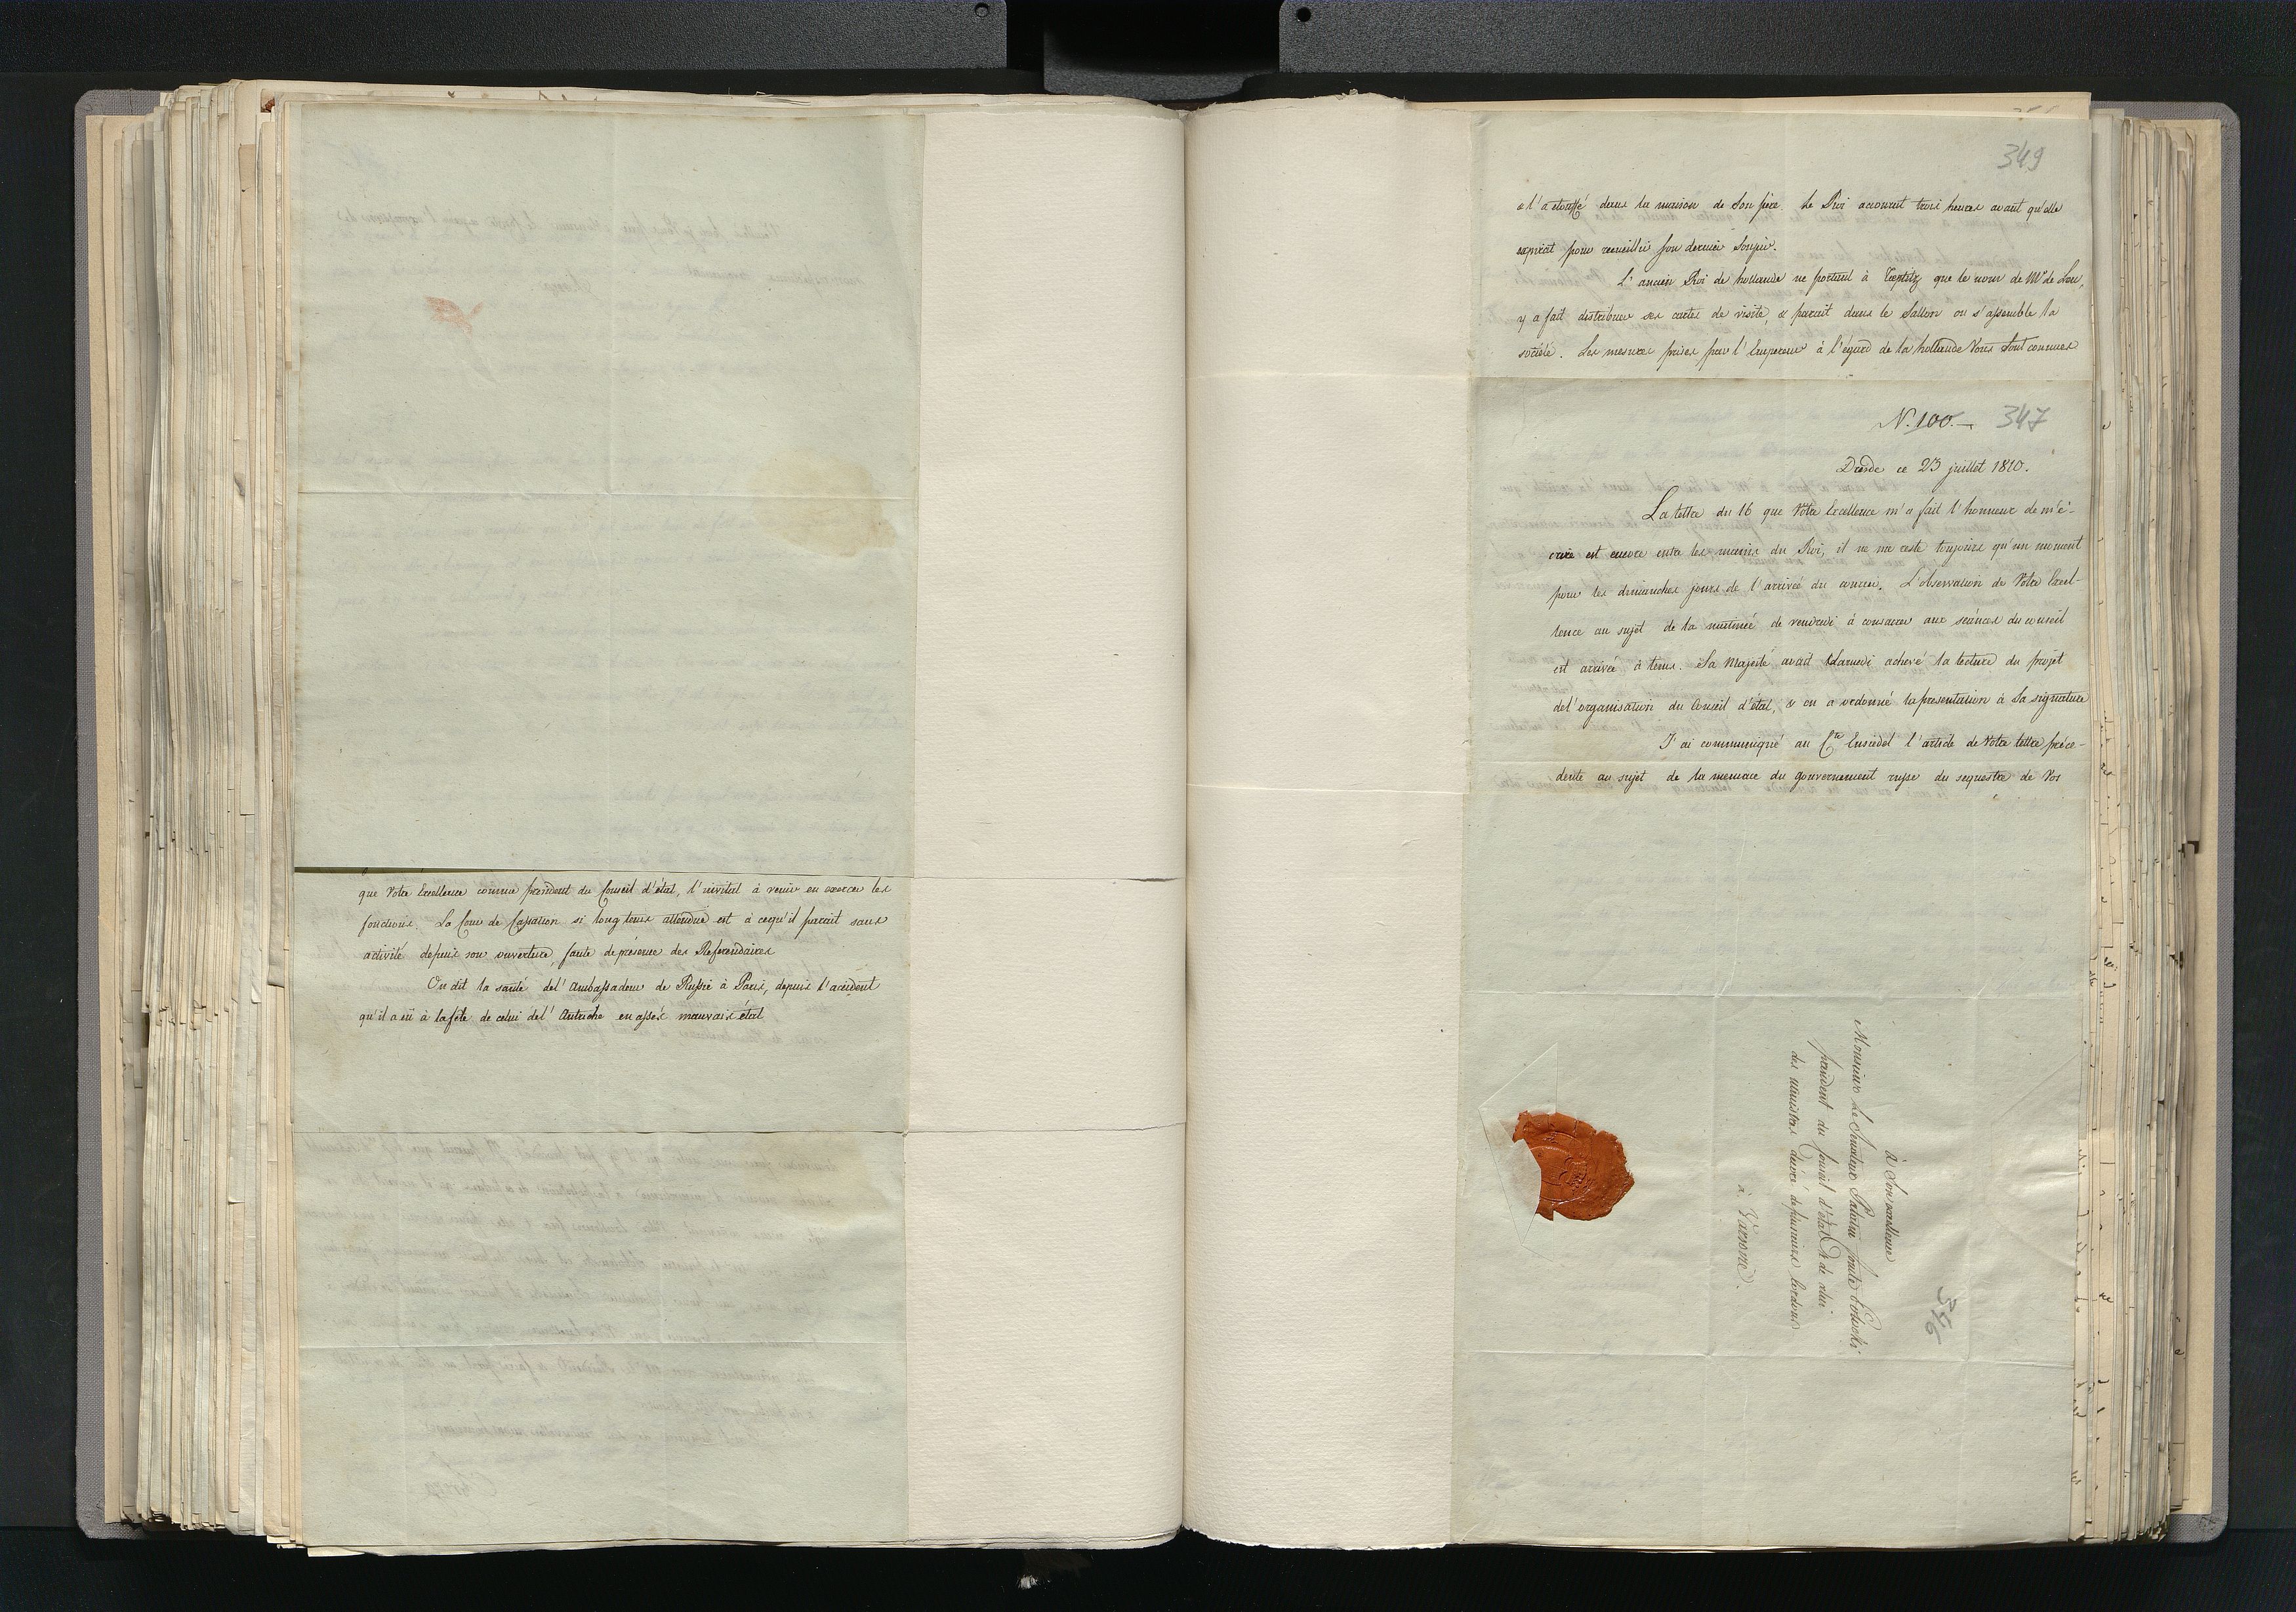 que Votre Excellence comme président du Conseil d'état, l'invitat à venir en exercer les
fonctions. La Cour de Cassation si long tems attendue est à cequ'il parait sans
activité depuis son ouverture, faute de présence des Referendaires
On dit la santé del'Ambassadeur de Russie à Paris, depuis l'accident
qu'il a eû à la fête de celui del'Autriche en assés mauvais état
349
& l'a etouffé dans la maison de Son père. Le Roi accourut trois heures avant qu'elle
expirat pour recueillir Son dernier Soupir.
L'ancien Roi de hollande ne portant à Toeplitz que le nom de Mr de Leu,
y a fait distribuer ses cartes de visite, & parait dans le Sallon ou s'assemble la
société. Les mesures prises par l'Empereur à l'égard de la hollande Vous Sont connues
N. 100. 347
Dresde ce 23 juillet 1810.
La lettre du 16 que Votre Excellence m'a fait l'honneur de m'é-
crire est encore entre les mains du Roi, il ne me reste toujours qu'un moment
pour les dimanches jours de l'arrivée du courier. L'observation de Votre Excel-
lence au sujet de la matinée de vendredi à consacrer aux séances du conseil
est arrivée à tems. Sa Majesté avait Samedi achevé la lecture du projet
del'organisation du Conseil d'état, & en a ordonné la presentation à Sa signature
J'ai communiqué au Cte Einsiedel l'article de Votre lettre préce-
dente au sujet de la menace du gouvernement russe du sequestre de Vos
à Son excellence
Monsieur Le Senateur Palatin Comte Potocki
président du Conseil d'état & de celui
des ministres decoré de plusieurs Cordons
à Varsovie.
346